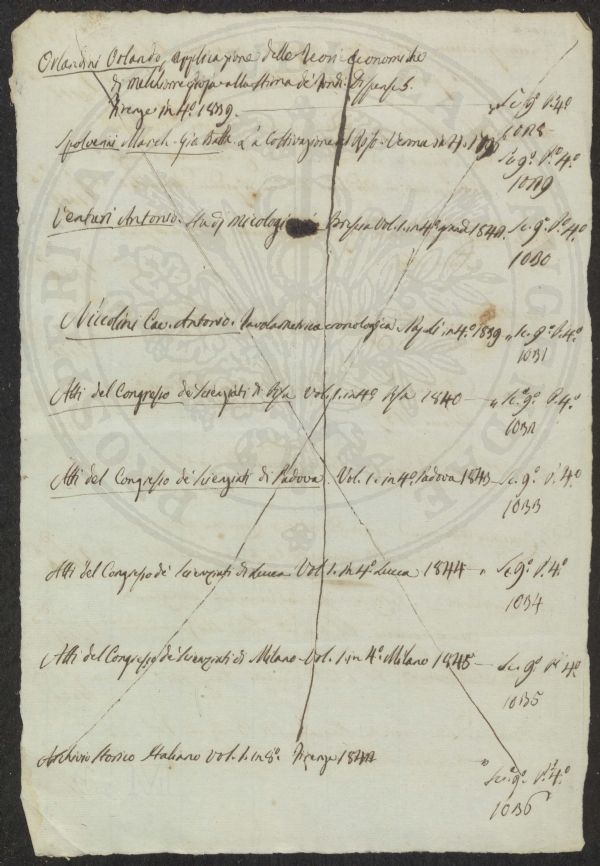 Orlandini Orlando, applicazione delle Teorie Economiche
di Melchiorre Gioja alla Stima de' fondi. Dispense 5.
Firenze in 4º 1839. " Sc. 9º P. 4º
1028
Spolverini March. Gio Batta. La Coltivazione del Riso. Verona in 4. Sc. 9º P. 4º
1029
Venturi Antonio. Studj Micologici Brescia Vol. 1. in 4º grande 1842. Sc. 9º P. 4º
1030
Niccolini Cav. Antonio. Tavola metrica cronologica Napoli in 4º 1839 " Sc. 9º P. 4º
1031
Atti del Congresso de' Scienziati di Pisa Vol. 1. in 4º Pisa 1840 — " Sc. 9º P. 4º
1032
Atti del Congresso de' Scienziati di Padova. Vol. 1. in 4º Padova 1843 — Sc. 9º P. 4º
1033
Atti del Congresso de' Scienziati di Lucca Vol. 1. in 4º Lucca 1844 — " Sc. 9º P. 4º
1034
Atti del Congresso de' Scienziati di Milano — Vol. 1. in 4º Milano 1845 — Sc. 9º P. 4º
1035
Archivio Storico Italiano Vol. 1. in 8º. Firenze 1842 " Sc. 9º P. 4º
1036